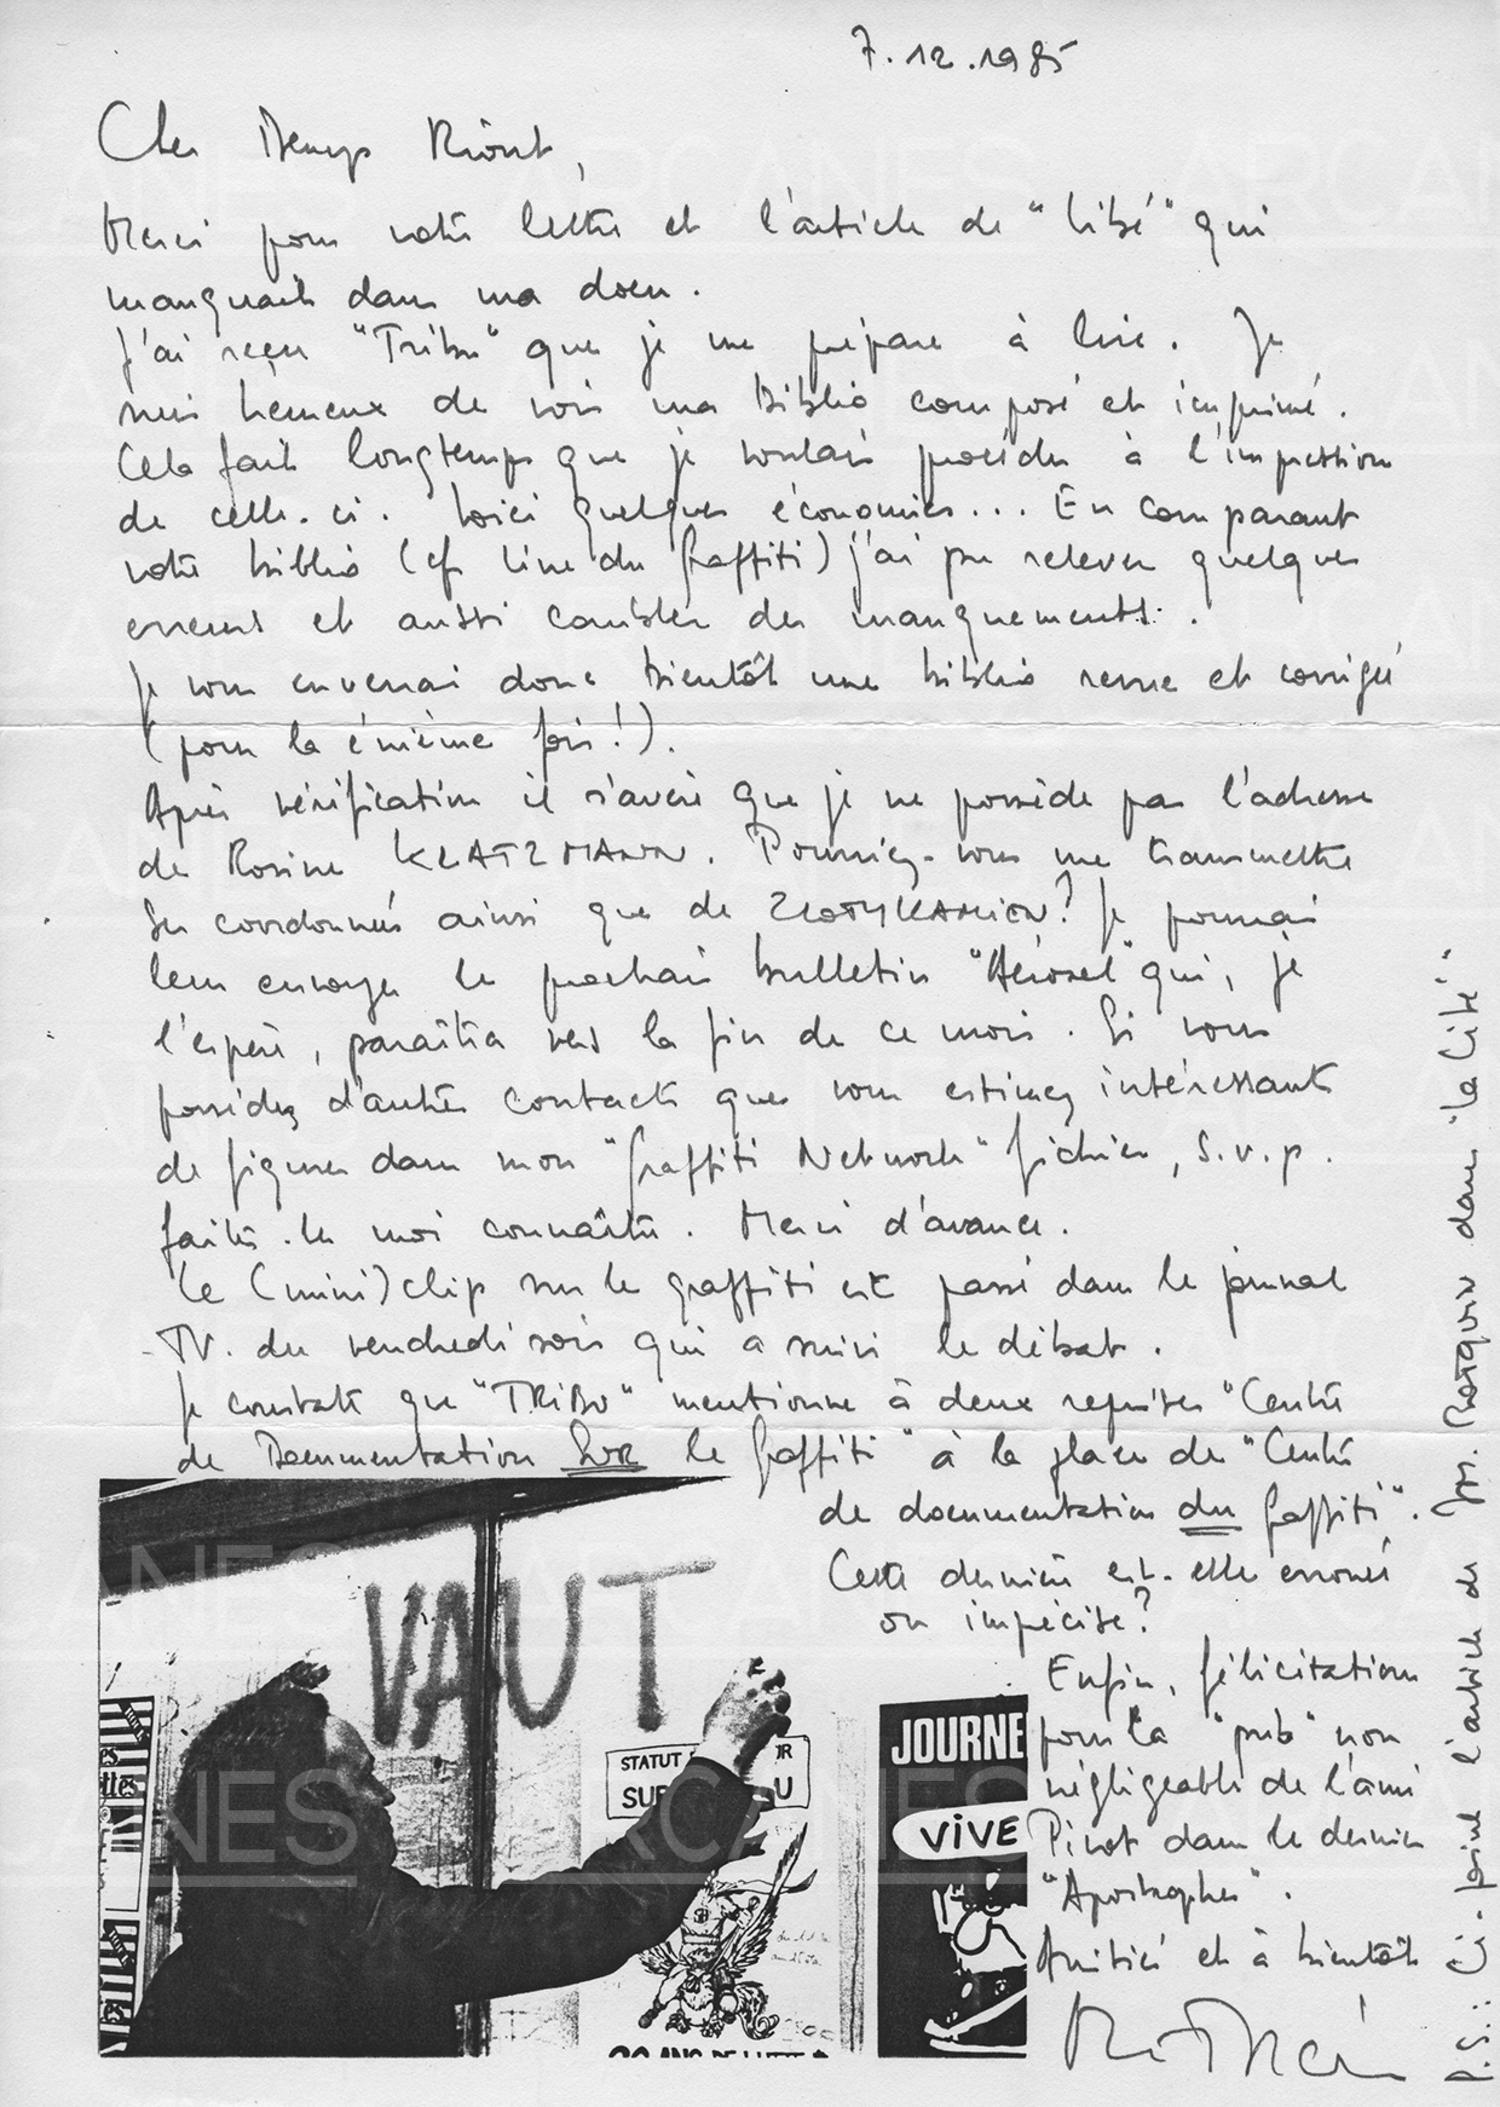 7.12.1985
Cher Denys Riout,
Merci pour votre lettre et l'article de "Libé" qui
manquait dans ma docu.
J'ai reçu "Tribu" que je me prépare à lire. Je
suis heureux de voir ma biblio composé et imprimé.
Cela fait longtemps que je voulais procéder à l'impression
de celle-ci. Voici quelques économies... En comparant
votre biblio (cf livre du Graffiti) j'ai pu relever quelques
erreurs et aussi combler des manquements.
Je vous enverrai donc bientôt une biblio revue et corrigée
(pour la énième fois!).
Après vérification il s'avère que je ne possède pas l'adresse
de Rosine KLATZMANN. Pourriez-vous me transmettre
ses coordonnées ainsi que de ZLOTYKAMIEN? Je pourrai
leur envoyer le prochain bulletin "Aérosol" qui, je
l'espère, paraîtra vers la fin de ce mois. Si vous
possédez d'autres contacts que vous estimez intéressants
de figurer dans mon "Graffiti Network" fichier, s.v.p.
faites-le moi connaître. Merci d'avance.
Le (mini)clip sur le graffiti est passé dans le journal
TV. du vendredi soir qui a suivi le débat.
Je constate que "TRIBU" mentionne à deux reprises "Centre
de Documentation SUR le Graffiti" à la place de "Centre
de documentation du Graffiti".
Cette dernière est-elle erronée
ou imprécise?
Enfin, félicitations
pour la "pub" non
négligeable de l'ami
Pivot dans le dernier
"Apostrophes".
Amitiés et à bientôt
P.S.: Ci-joint l'article de dans "la Cité"
VAUT
STATUT
SUP
U
JOURNE
VIVE
ARCANES